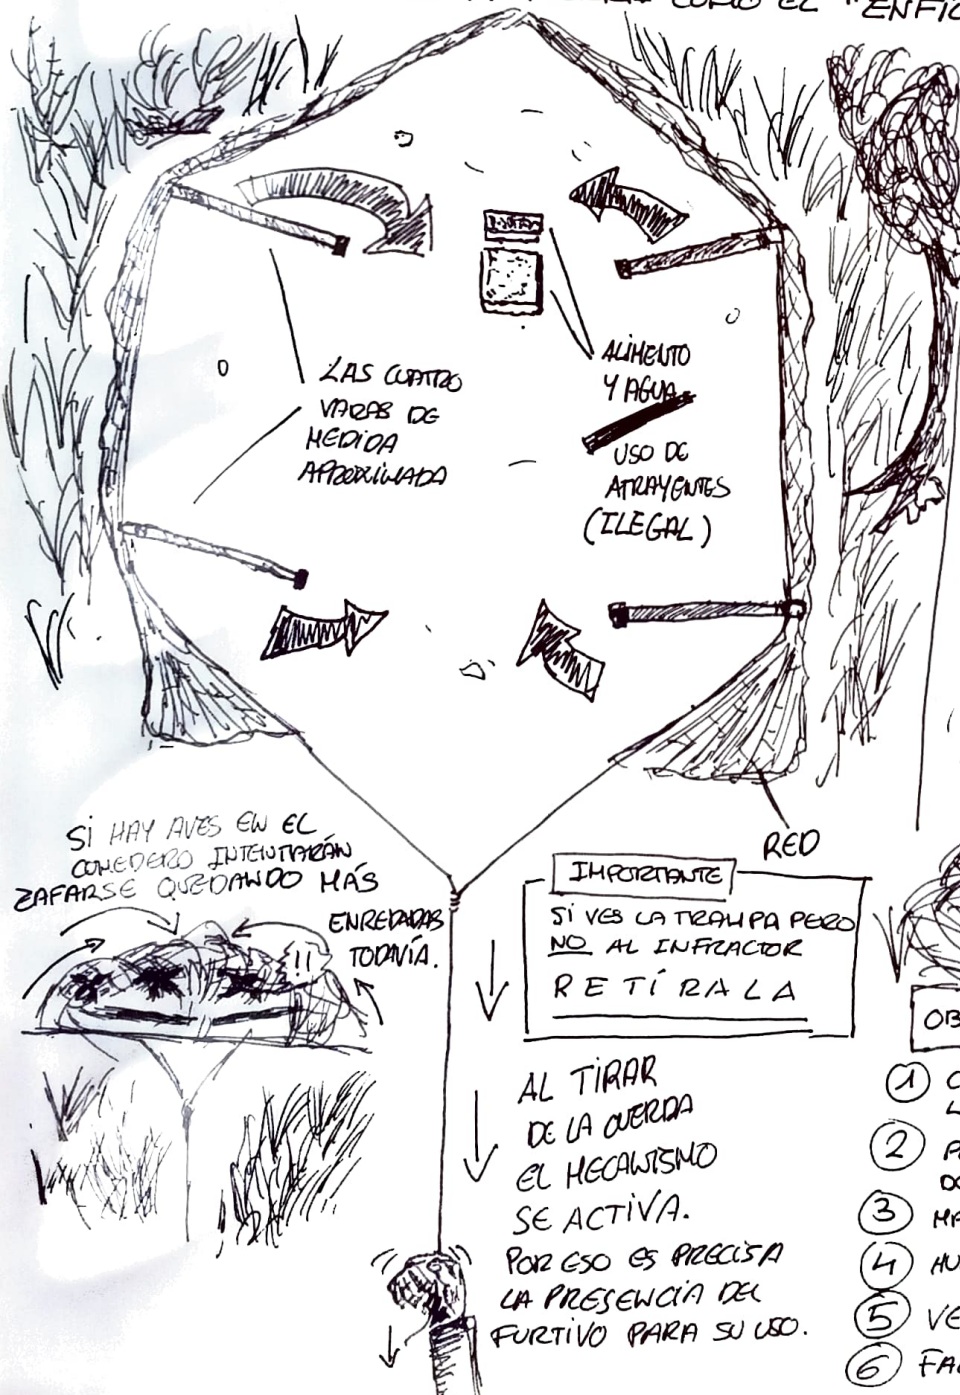 COMO EL "ENFIL
LAS CUATRO
VARAS DE
MEDIDA
APROXIMADA
ALIMENTO
Y AGUA
USO DE
ATRAYENTES
(ILEGAL)
RED
SI HAY AVES EN EL
COMEDERO INTENTARÁN
ZAFARSE QUEDANDO MÁS
ENREDADAS
TODAVÍA.
!!
IMPORTANTE
SI VES LA TRAMPA PERO
NO AL INFRACTOR
RETÍRALA
AL TIRAR
DE LA CUERDA
EL MECANISMO
SE ACTIVA.
POR ESO ES PRECISA
LA PRESENCIA DEL
FURTIVO PARA SU USO.
OB
1 C
L
2 P
DO
3 MA
4 HU
5 VE
6 FA